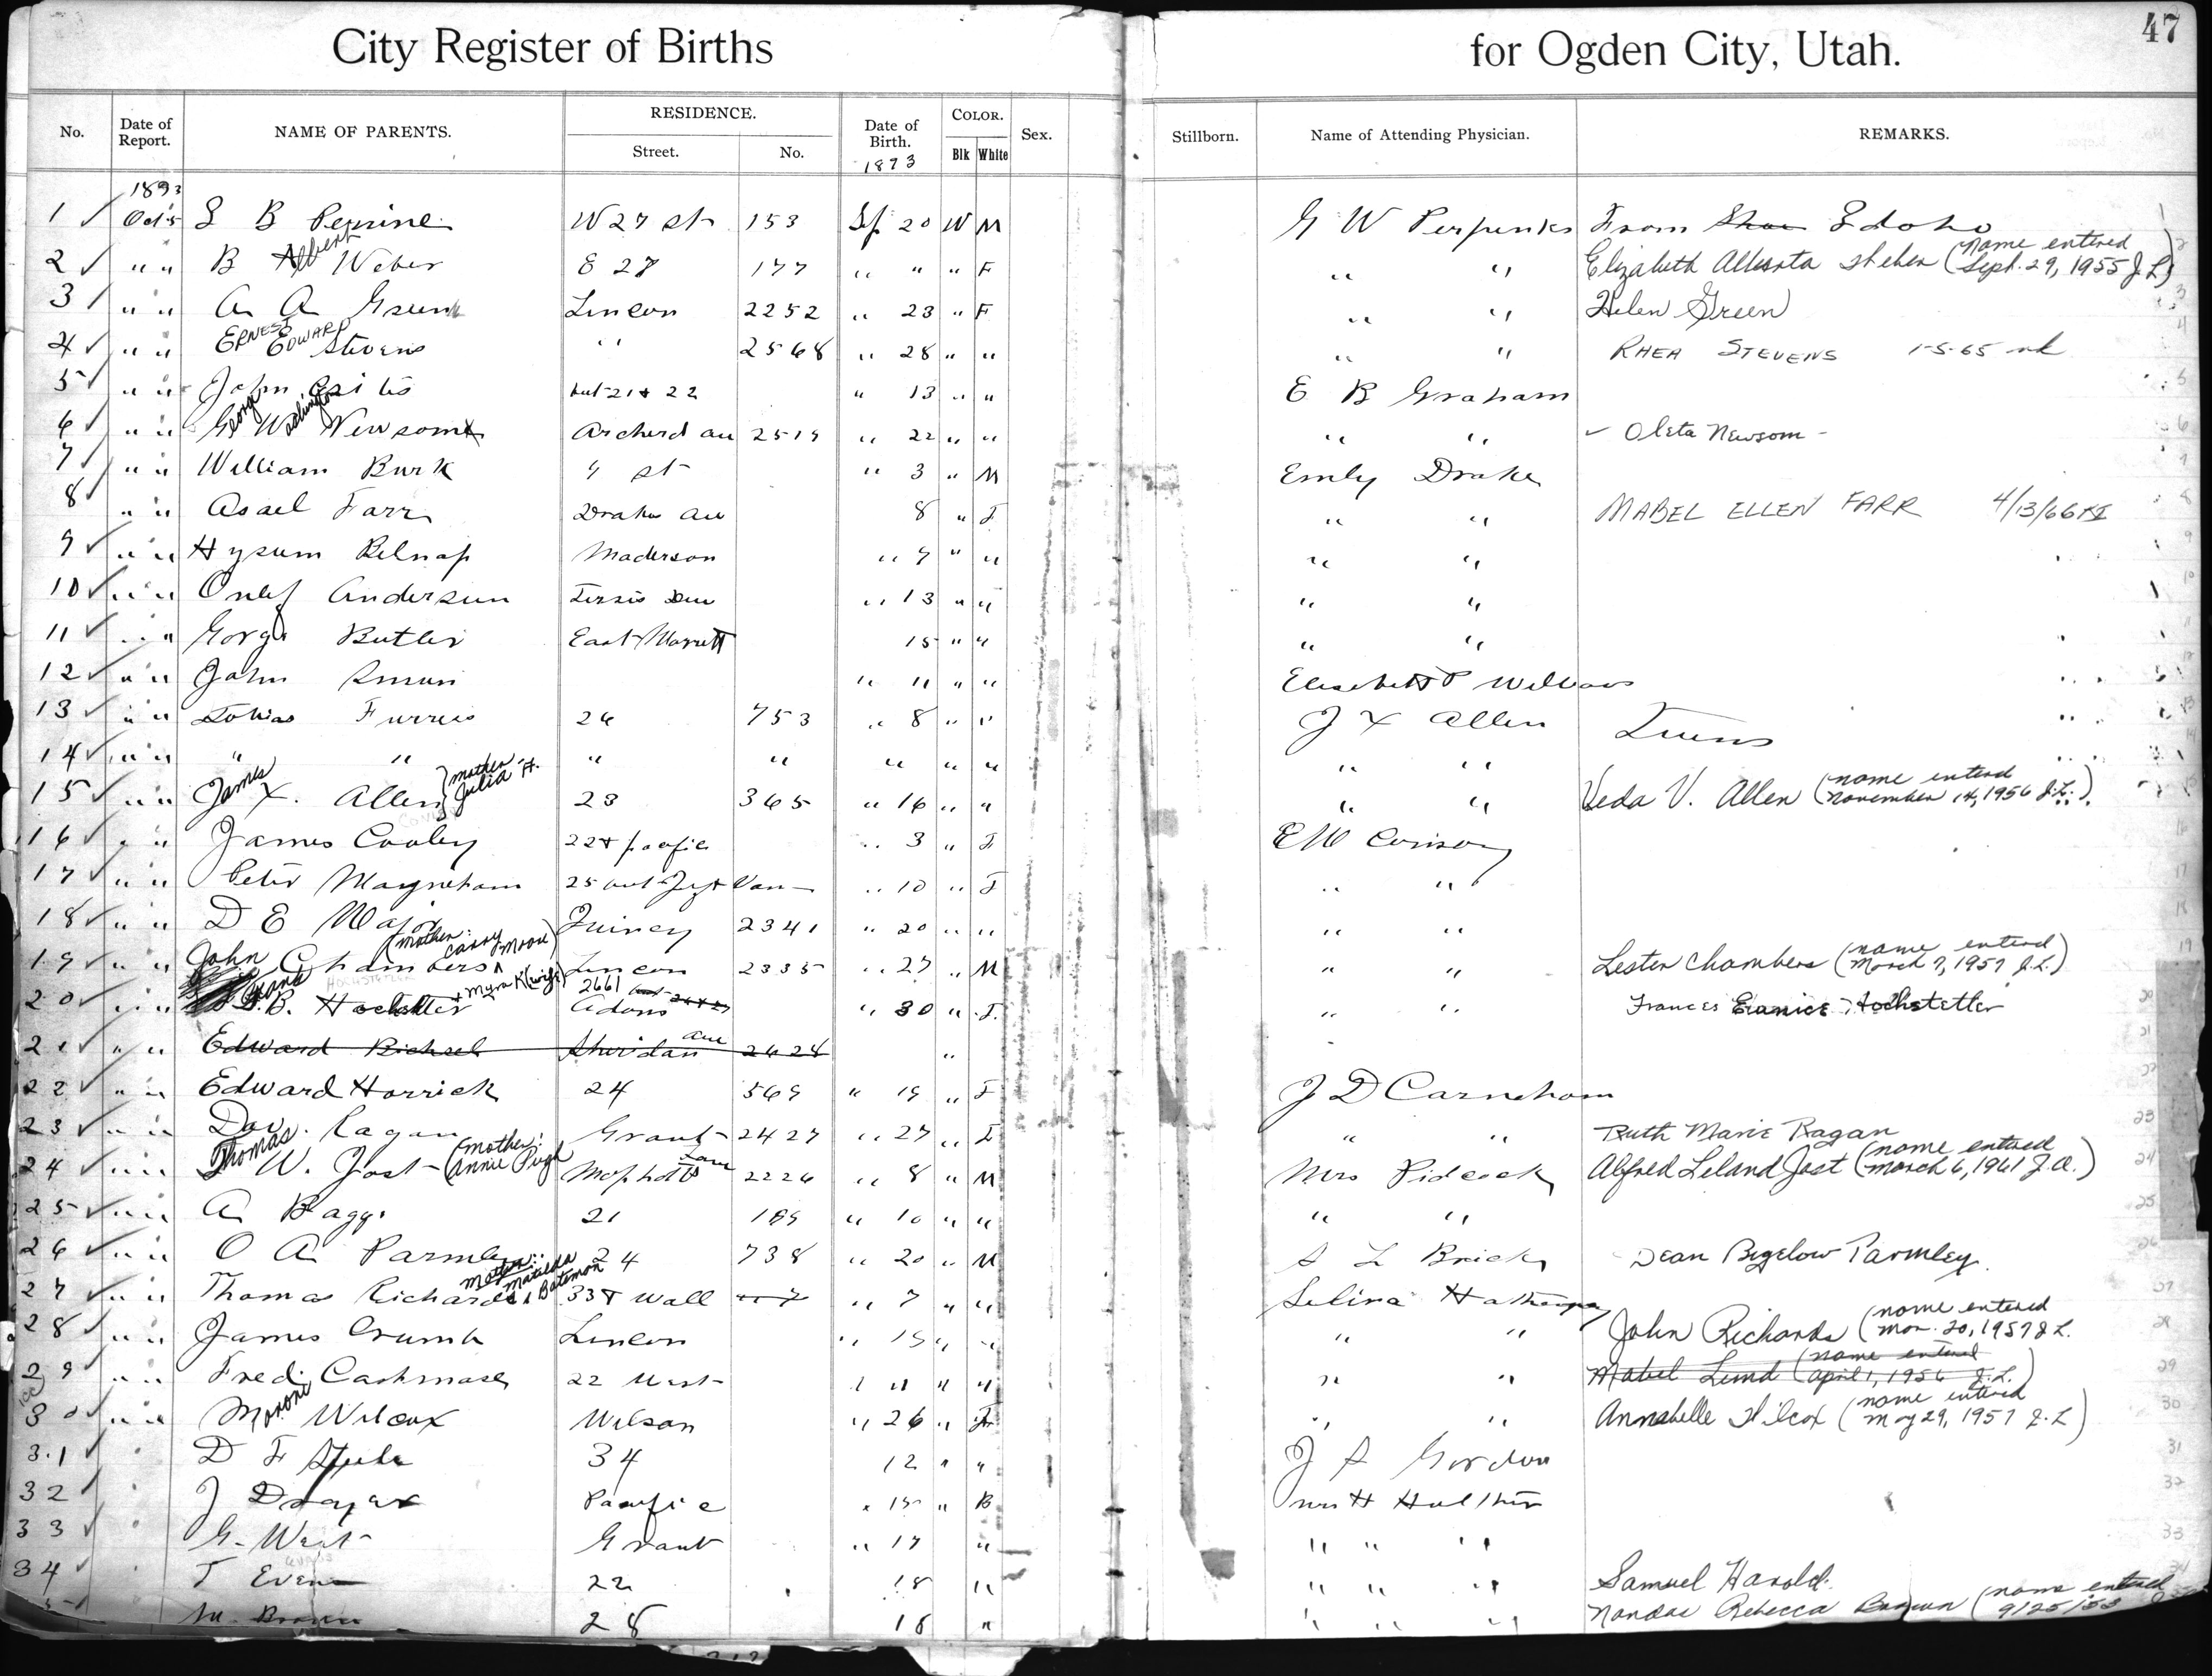 City Register of Births for Ogden City, Utah. 47
No. Date of Report. NAME OF PARENTS. RESIDENCE. Street. No. Date of Birth. 1893 COLOR. Blk White Sex. Stillborn. Name of Attending Physician. REMARKS.
1893
1 ✓ Oct 5 L B Perrine W 27 st 153 Sep 20 W M G W Perpenks From Idaho
2 ✓ " " B Albert Weber E 27 177 " " " F " " Elizabeth Alberta Weber (name entered Sept. 29, 1955 J.L.)
3 / " " A A Green Lincon 2252 " 23 " F " " Helen Green
4 ✓ " " ERNEST EDWARD Stevens " 2568 " 28 " " " " RHEA STEVENS 1-5-65
5 ✓ " " John 21 & 22 " 13 " " E B Graham
6 ✓ " " George Washington Newsom Archerd au 2519 " 22 " " " " ✓ Oleta Newsom -
7 ✓ " " William Burk 9 st " 3 " M Emily Drake
8 ✓ " " Asael Farr Drake au 8 " F " " MABEL ELLEN FARR 4/13/66
9 ✓ " " Hyrum Belnap Maderson " 9 " " " "
10 ✓ " " Anderson " 13 " " " "
11 ✓ " " Gorge Butler East 15 " " " "
12 ✓ " " John " 11 " "
13 ✓ " " Tobias Furrer 26 753 " 8 " " J X Allen Twins
14 ✓ " " " " " " " " " " " "
15 ✓ " " James X. Allen (mother - Julia H. 23 365 " 16 " " " " Veda V. Allen (name entered November 14, 1956 J.L.)
16 ✓ " " James Cooley 22 & pacific " 3 " F E W Conison
17 ✓ " " Peter 25 " 10 " F " "
18 ✓ " " D E Major Quincy 2341 " 20 " " " "
19 ✓ " " John Chambers (mother: Carry Moore) Lincon 2335 " 27 " M " " Lester Chambers (name entered March 7, 1957 J.L.)
20 ✓ " " B. Hochstetler + Myra K (wife) 2661 Adams " 30 " F " " Frances Eunice Hochstetler
21 ✓ " " Edward Bichsel Sheridan ave 2624 "
22 ✓ " " Edward Horrick 24 569 " 19 " F J D Carneham
23 ✓ " " Dav. Ragan Grant 2427 " 27 " F " " Ruth Marie Ragan
24 ✓ " " Thomas W. Jost (mother: Annie Pugh 2226 " 8 " M Mrs Pidcock Alfred Leland Jost (name entered March 6, 1961 J.A.)
25 ✓ " " A Baggs 21 189 " 10 " " " "
26 ✓ " " O A Parmley 24 738 " 20 " M S L Brick Dean Bigelow Parmley.
27 ✓ " " Thomas Richards Mother: Matilda Bateman 33 & Wall " 7 " " Selina
28 ✓ " " James Crumb Lincon " 15 " " " " John Richards (name entered Mar. 20, 1957 J.L.
29 ✓ " " Fred Cashmore 22 West " " " " " Mabel Lund (name entered April 1, 1956 J.L.)
30 ✓ " " Moroni Wilcox Wilson " 26 " F " " Annabelle Wilcox (name entered May 29, 1957 J.L.)
31 ✓ " D F Steele 34 12 " " J S Gordon
32 ✓ " J Draper Pacific " 15 " B Mrs H
33 ✓ " G. West Grant " 17 " " " "
34 ✓ " T Evans 22 18 " " " " Samuel Harold.
5 M. Brown 28 18 " " " " Rebecca Brown (name entered 9/25/53